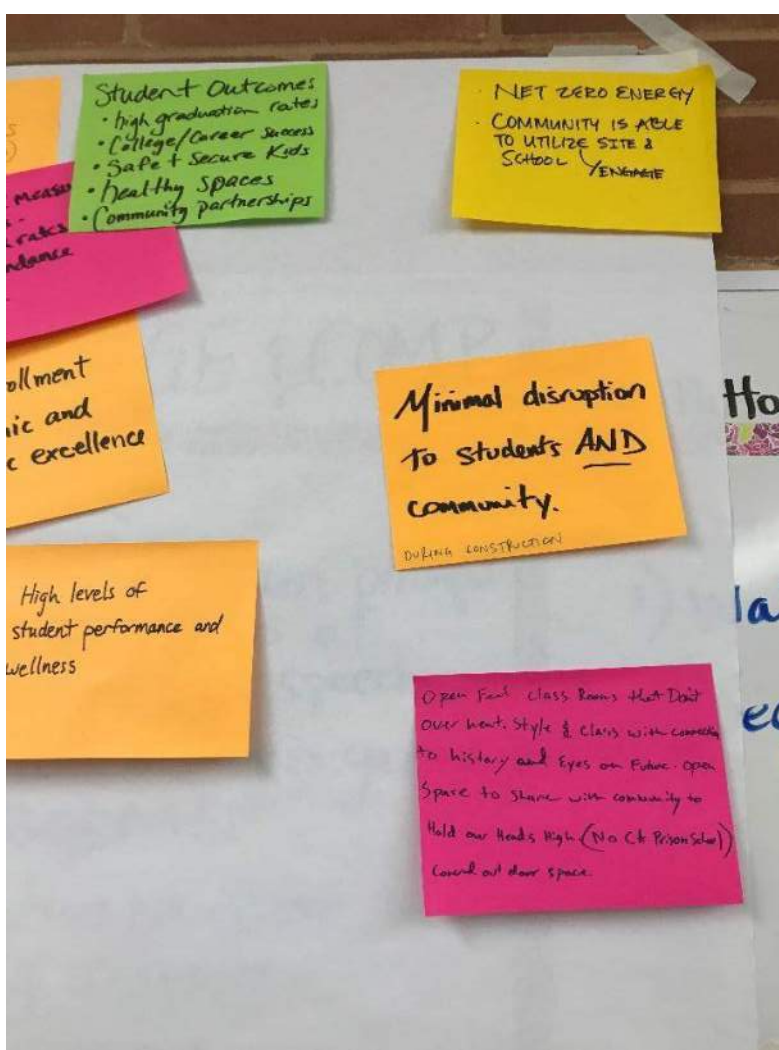 Student Outcomes
• high graduation rates
• College/Career Success
• Safe + Secure Kids
• healthy spaces
• Community partnerships
· NET ZERO ENERGY
· COMMUNITY IS ABLE
TO UTILIZE SITE &
SCHOOL
ENGAGE
rates
ollment
ic and
c excellence
Minimal disruption
to students AND
community.
DURING CONSTRUCTION
High levels of
student performance and
wellness
Open Feel Class Rooms that Don't
over heat. Style & Class with connection
to history and Eyes on Future. Open
Space to share with community to
Hold our Heads High (No Prison School)
out door space.
Ho
la